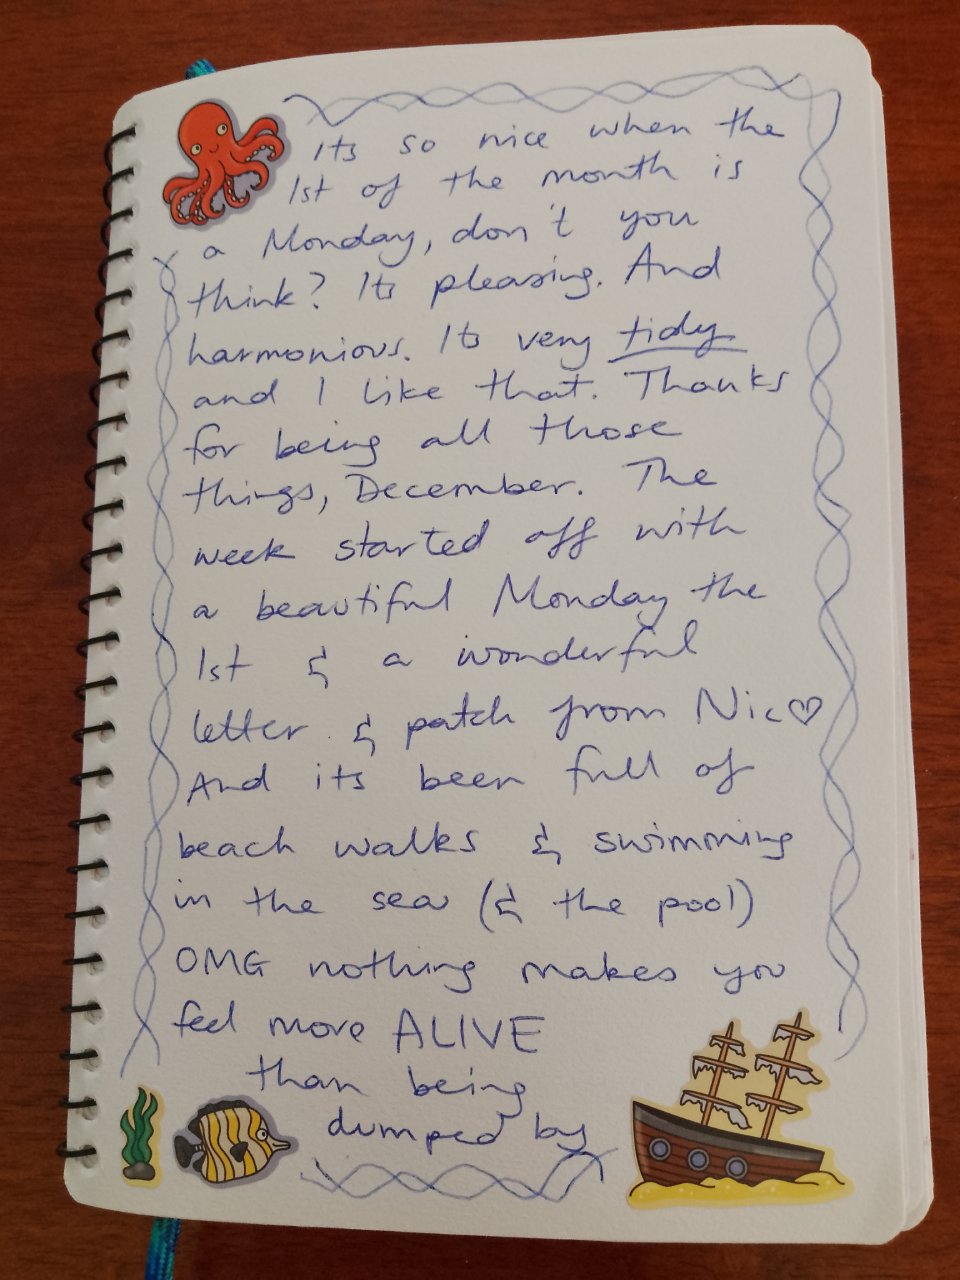 Its so nice when the
1st of the month is
a Monday, don't you
think? Its pleasing. And
harmonious. Its very tidy
and I like that. Thanks
for being all those
things, December. The
week started off with
a beautiful Monday the
1st & a wonderful
letter & patch from Nic♡
And its been full of
beach walks & swimming
in the sea (& the pool)
OMG nothing makes you
feel more ALIVE
than being
dumped by